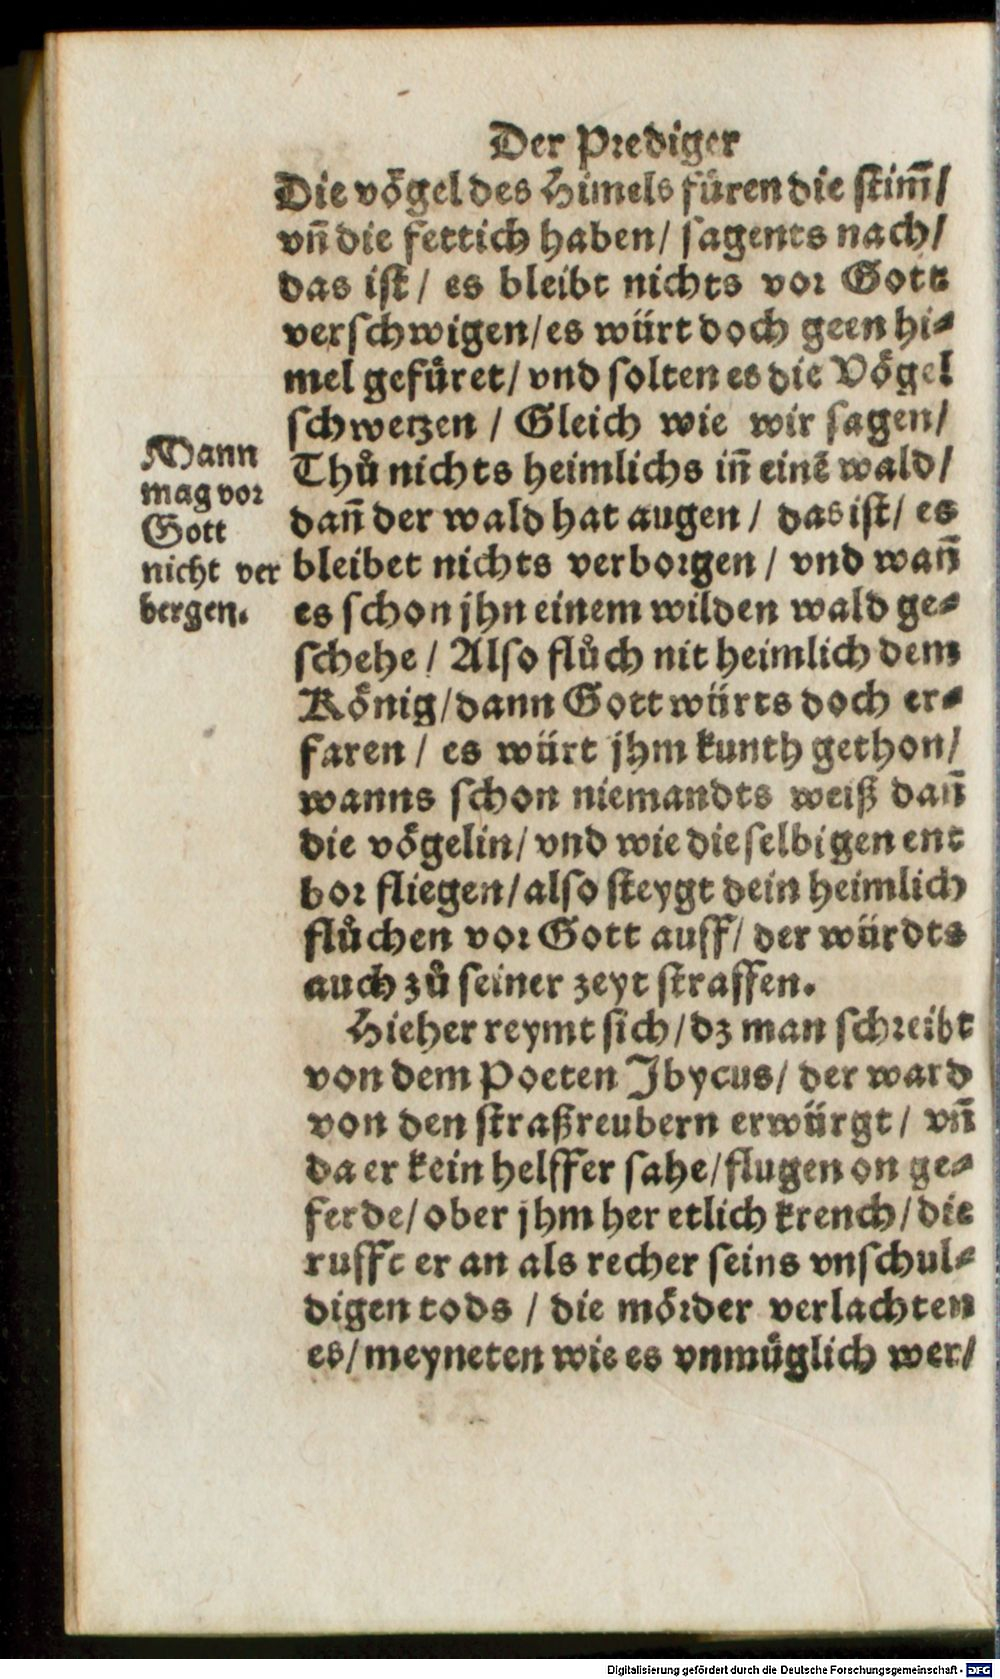 Der Prediger
Die vögel des Himels füren die stim̃/
vñ die fettich haben/ sagents nach/
das ist/ es bleibt nichts vor Gott
verschwigen/ es würt doch geen hi⸗
mel gefüret/ vnd solten es die Vögel
schwetzen / Gleich wie wir sagen/
Thů nichts heimlichs iñ einẽ wald/
dañ der wald hat augen / das ist/ es
bleibet nichts verborgen / vnd wañ
es schon jhn einem wilden wald ge⸗
schehe / Also flůch nit heimlich dem
König/ dann Gott würts doch er⸗
faren / es würt jhm kunth gethon/
wanns schon niemandts weiß dañ
die vögelin/ vnd wie die selbigen ent
bor fliegen/ also steygt dein heimlich
flůchen vor Gott auff/ der würdts
auch zů seiner zeyt straffen.
Hieher reymt sich/ dz man schreibt
von dem Poeten Ibycus/ der ward
von den straßreubern erwürgt / vñ
da er kein helffer sahe/ flugen on ge⸗
ferde/ ober jhm her etlich krench/ die
rufft er an als recher seins vnschul⸗
digen tods / die mörder verlachten
es/ meyneten wie es vnmüglich wer/
Mann
mag vor
Gott
nicht ver
bergen.
Digitalisierung gefördert durch die Deutsche Forschungsgemeinschaft - DFG